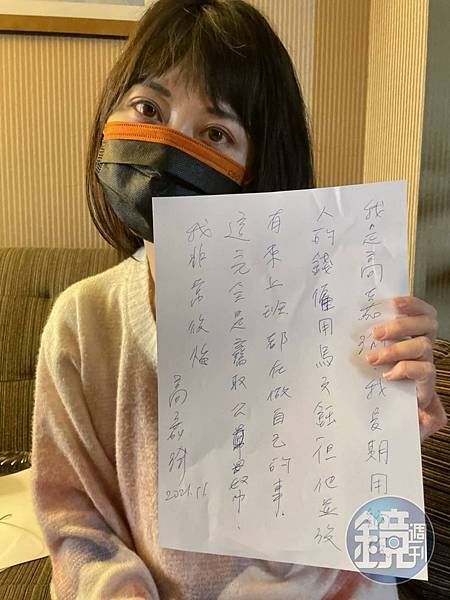 我是高嘉瑜,我長期用
人的錢僱用馬文鈺,但他並沒
有來上班都在做自己的事.
這完全是竊取公帑.
我非常後悔
高嘉瑜
2021.11
鏡週刊